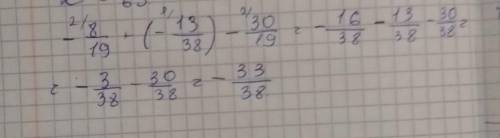 - ²⁾8/19 · (- ¹⁾13/38) - ²⁾30/19 = - 16/38 - 13/38 - 30/38 =
= - 3/38 - 30/38 = - 33/38